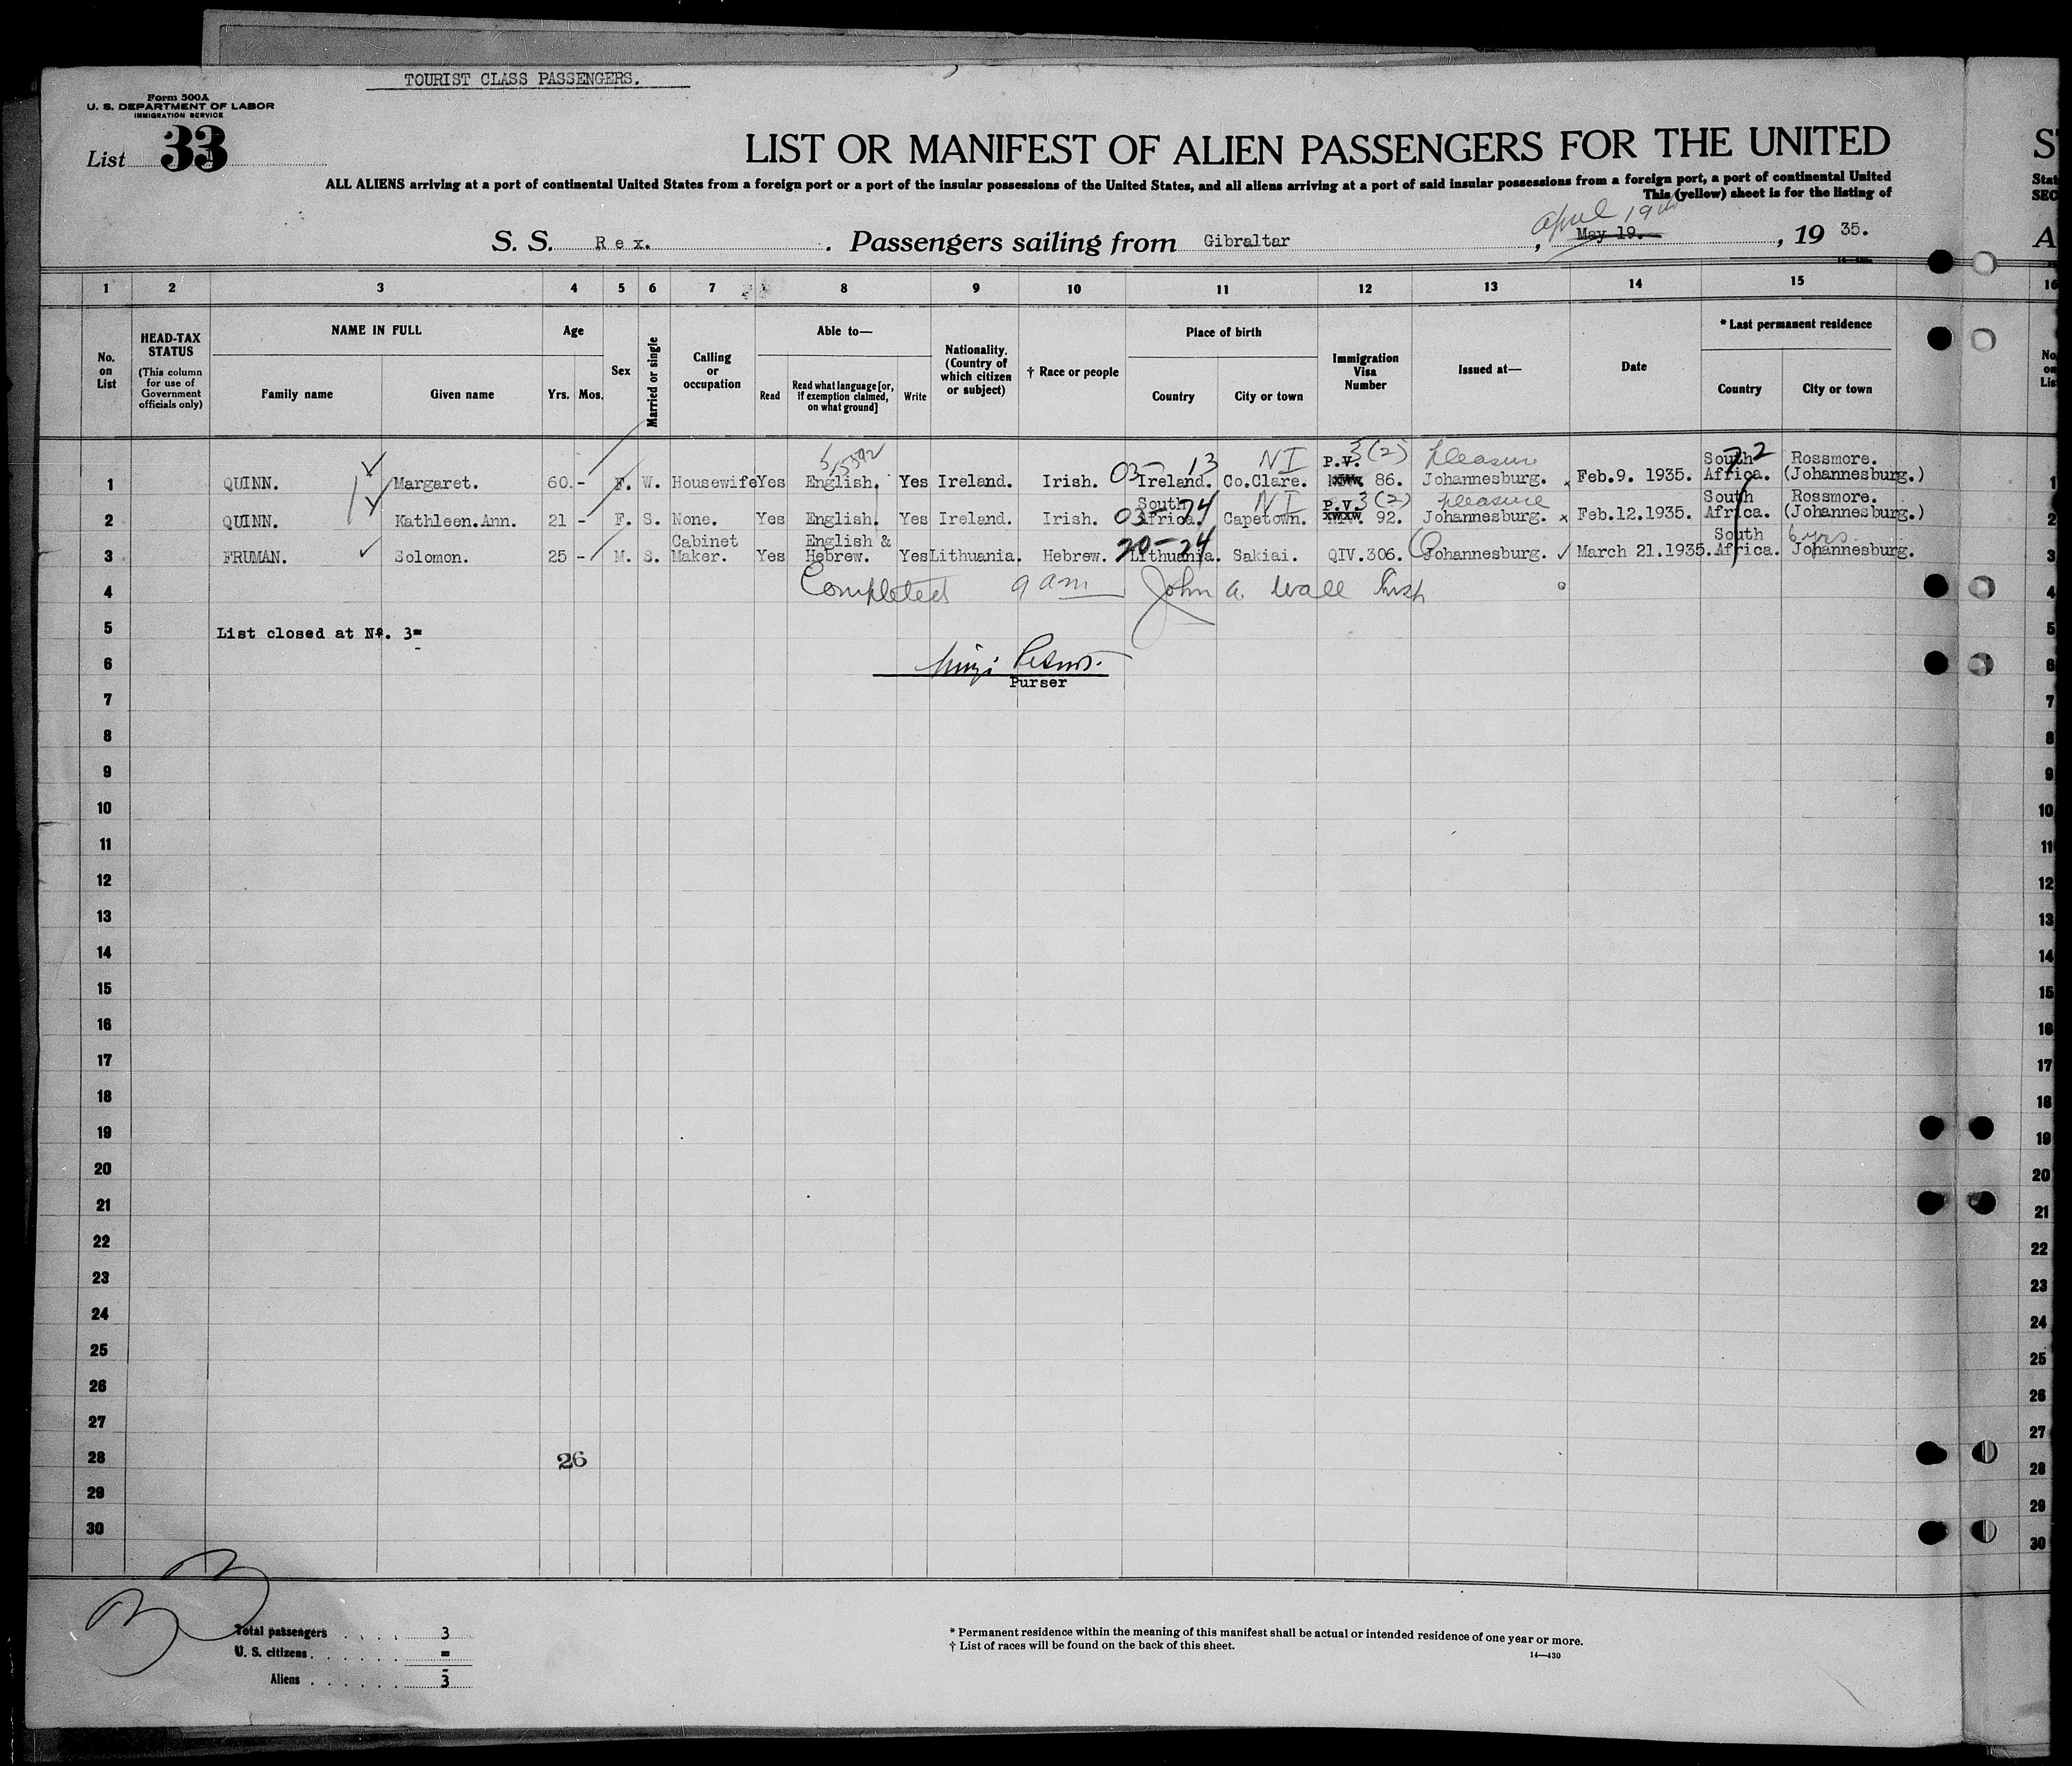 TOURIST CLASS PASSENGERS.
Form 500A
U. S. DEPARTMENT OF LABOR
IMMIGRATION SERVICE
List 33
LIST OR MANIFEST OF ALIEN PASSENGERS FOR THE UNITED
ALL ALIENS arriving at a port of continental United States from a foreign port or a port of the insular possessions of the United States, and all aliens arriving at a port of said insular possessions from a foreign port, a port of continental United
This (yellow) sheet is for the listing of
April 19th
S. S. Rex. Passengers sailing from Gibraltar, May 19., 1935.
1 2 3 4 5 6 7 8 9 10 11 12 13 14 15
No. on List
HEAD-TAX STATUS
(This column for use of Government officials only)
NAME IN FULL
Family name Given name
Age
Yrs. Mos.
Sex
Married or single
Calling or occupation
Able to—
Read
Read what language [or, if exemption claimed, on what ground]
Write
Nationality. (Country of which citizen or subject)
† Race or people
Place of birth
Country City or town
Immigration Visa Number
Issued at—
Date
* Last permanent residence
Country City or town
03- 13 NI P.V. 3(2) pleasure South 72 Rossmore.
1 QUINN. Margaret. 60.- F. W. Housewife Yes English. Yes Ireland. Irish. Ireland. Co.Clare. 86. Johannesburg. Feb.9. 1935. Africa. (Johannesburg.)
South 24 NI P.V. 3(2) pleasure South Rossmore.
2 QUINN. Kathleen.Ann. 21 - F. S. None. Yes English. Yes Ireland. Irish. 03- Africa. Capetown. 92. Johannesburg. x Feb.12.1935. Africa. (Johannesburg.)
Cabinet English & 20-24 South 6 yrs.
3 FRUMAN. Solomon. 25 - M. S. Maker. Yes Hebrew. Yes Lithuania. Hebrew. Lithuania. Sakiai. QIV.306. Johannesburg. March 21.1935. Africa. Johannesburg.
4 Completed 9 am John A. Wall Insp
5 List closed at No. 3=
6
Purser
7
8
9
10
11
12
13
14
15
16
17
18
19
20
21
22
23
24
25
26
27
28 26
29
30
33
Total passengers . . . . 3
U. S. citizens . . . . . . =
Aliens . . . . . . 3
* Permanent residence within the meaning of this manifest shall be actual or intended residence of one year or more.
† List of races will be found on the back of this sheet.
14—430